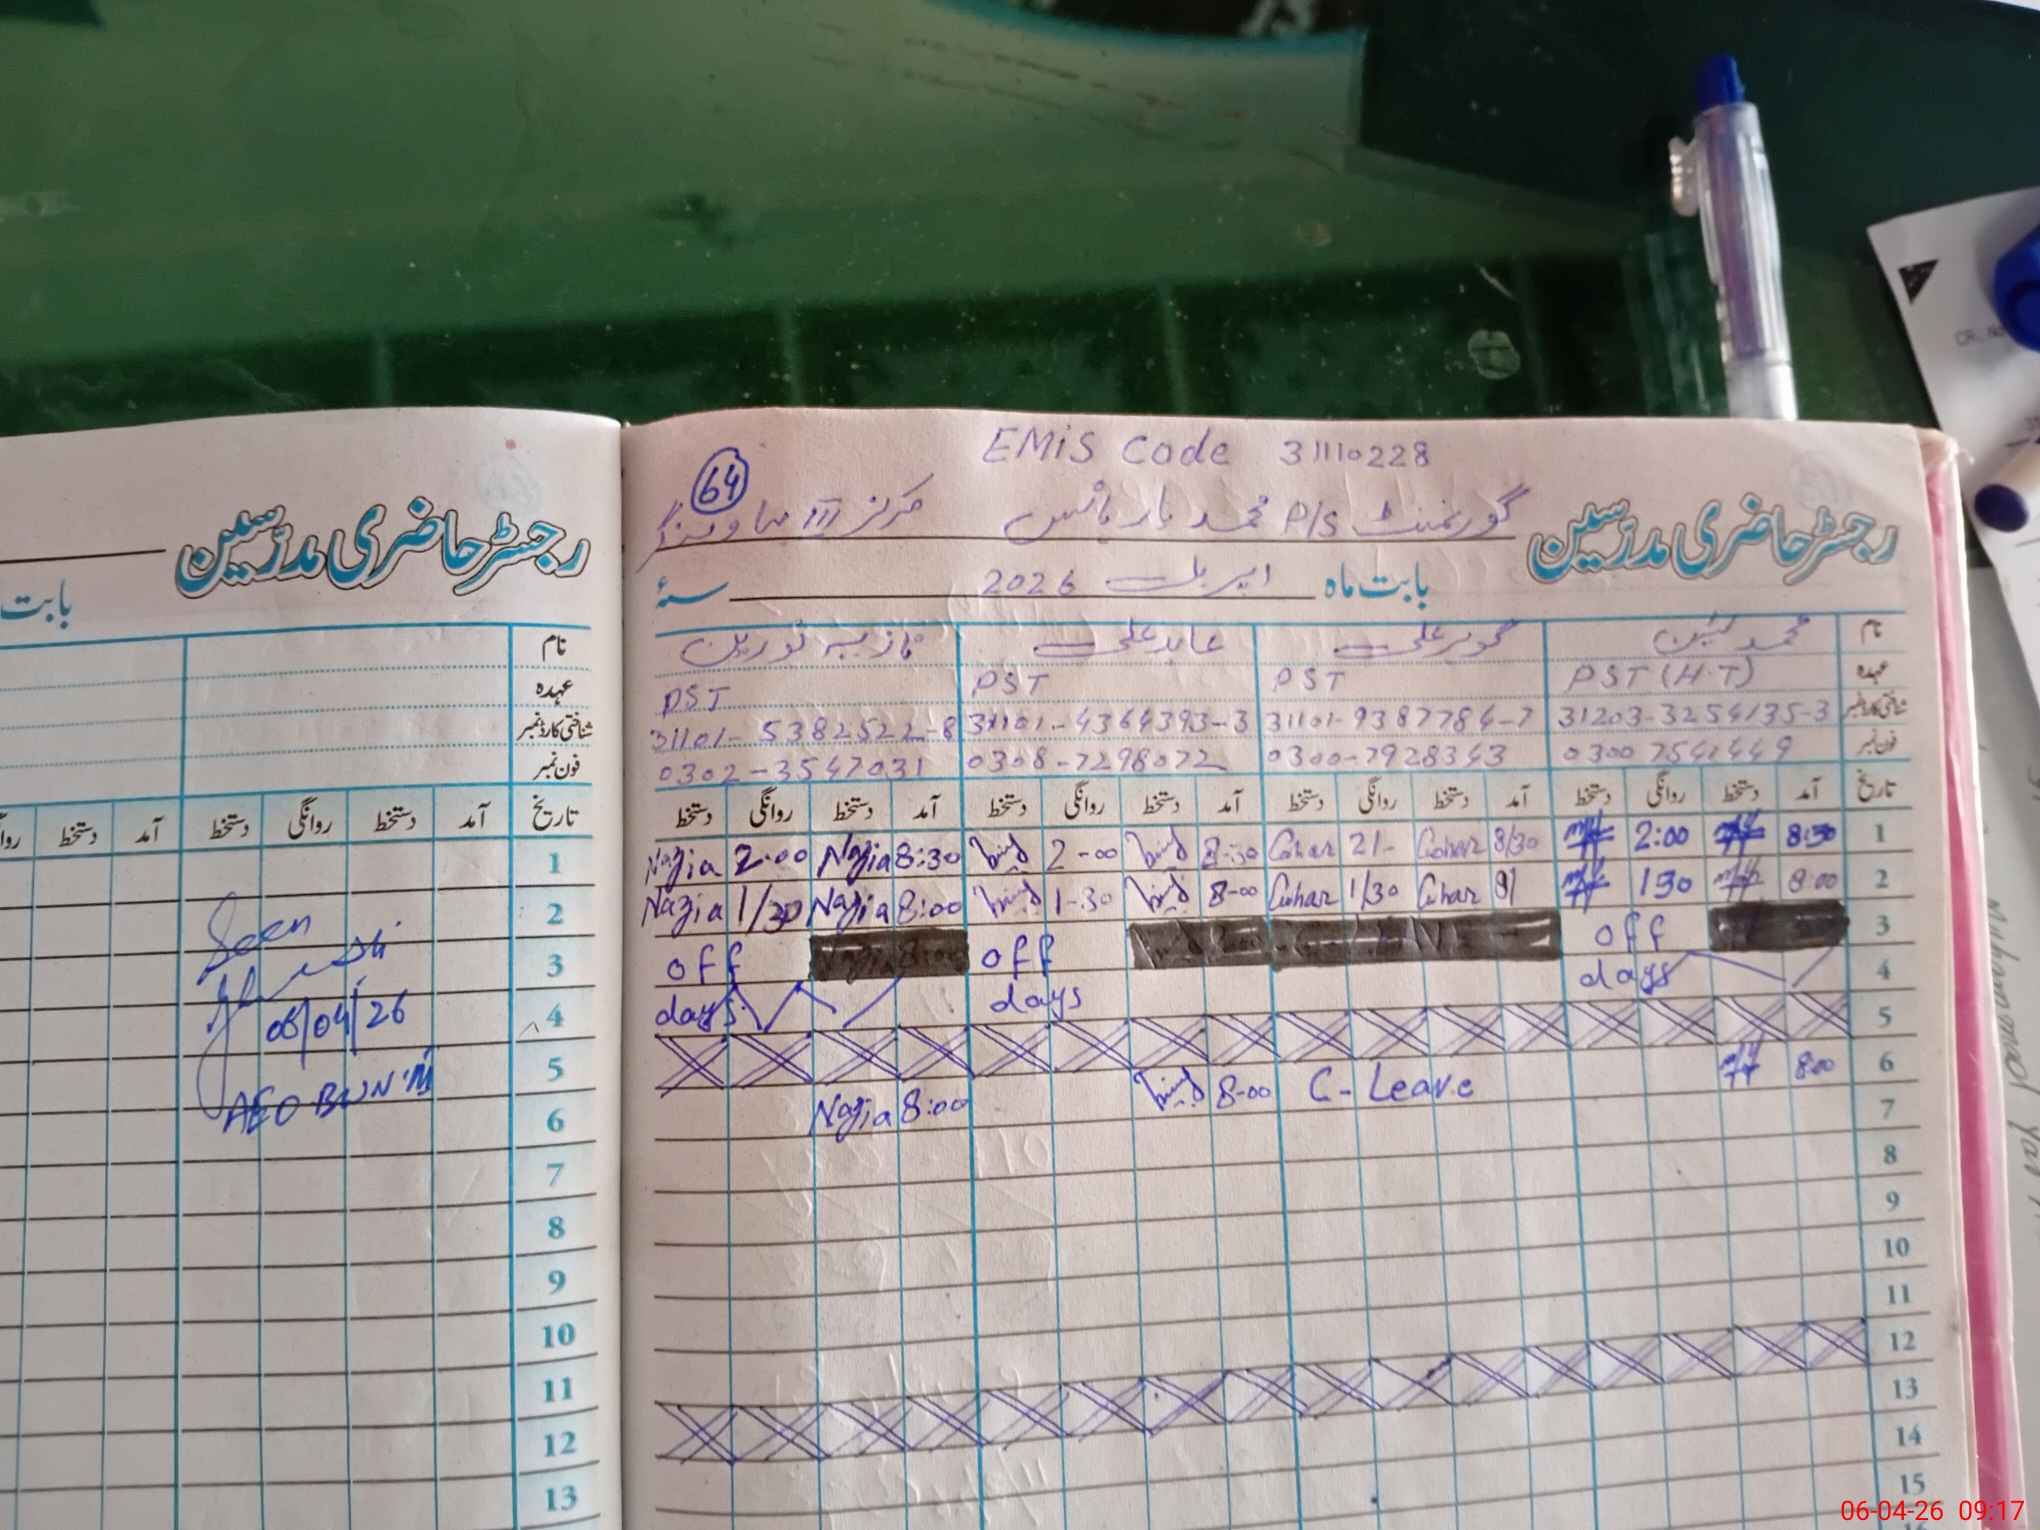 13
CR. No
EMiS Code 31110228
64
رجسٹر حاضری مدرسین گورنمنٹ P/S محمد یار ہانس مرکز III بہاولنگر
بابت ماہ اپریل 2026 سنہ
نام محمد یٰسین گوہر علی عابد علی نازیہ نورین
عہدہ PST (H.T) PST PST PST
شناختی کارڈ نمبر 31203-3254135-3 31101-9387784-7 31101-4364393-3 31101-5382522-8
فون نمبر 0300 7541449 0300-7928343 0308-7298072 0302-3547031
تاریخ آمد دستخط روانگی دستخط آمد دستخط روانگی دستخط آمد دستخط روانگی دستخط آمد دستخط روانگی دستخط
1 8:30 2:00 8/30 Gohar 2/- Gohar 8:30 2-00 8:30 Nazia 2:00 Nazia
2 8:00 130 8/ Gohar 1/30 Gohar 8-00 1-30 8:00 Nazia 1/30 Nazia
3 off off Nazia 8:00 off
4 days days days
5
6 8:00 C-Leave 8-00 8:00 Nazia
7
8
9
10
11
12
13
14
15
رجسٹر حاضری مدرسین
بابت
نام
عہدہ
شناختی کارڈ نمبر
فون نمبر
تاریخ آمد دستخط روانگی دستخط آمد دستخط
1
2
3
4
5
6
7
8
9
10
11
12
13
Seen
06/04/26
AEO BWN M
06-04-26 09:17